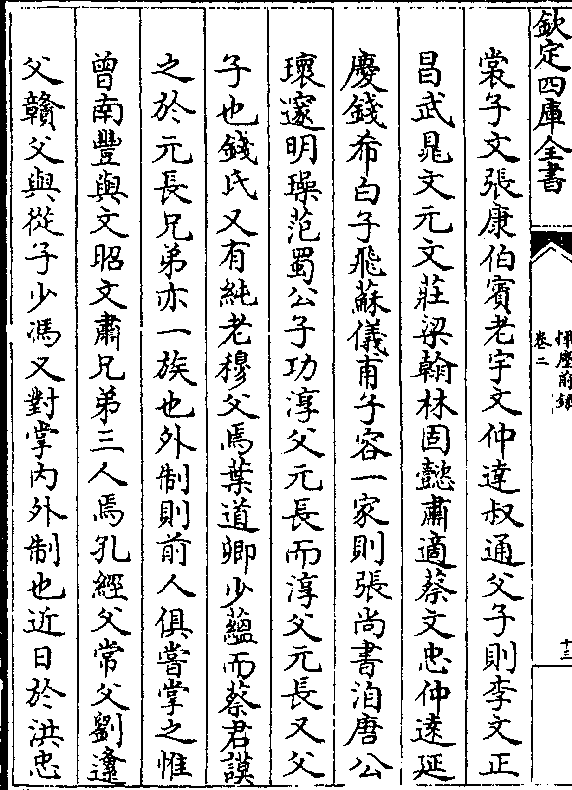 欽定四庫全書
揮麈前録
卷二
十三
裳子文張康伯賓老宇文仲達叔通父子則李文正
昌武晁文元文莊梁翰林固懿肅適蔡文忠仲逺延
慶錢希白子飛蘇儀甫子容一家則張尚書洎唐公
瓌邃明璪范蜀公子功淳父元長而淳父元長又父
子也錢氏又有純老穆父焉葉道卿少藴而蔡君謨
之於元長兄弟亦一族也外制則前人俱嘗掌之惟
曾南豐與文昭文肅兄弟三人焉孔經父常父劉邍
父贛父與從子少馮又對掌内外制也近日於洪忠